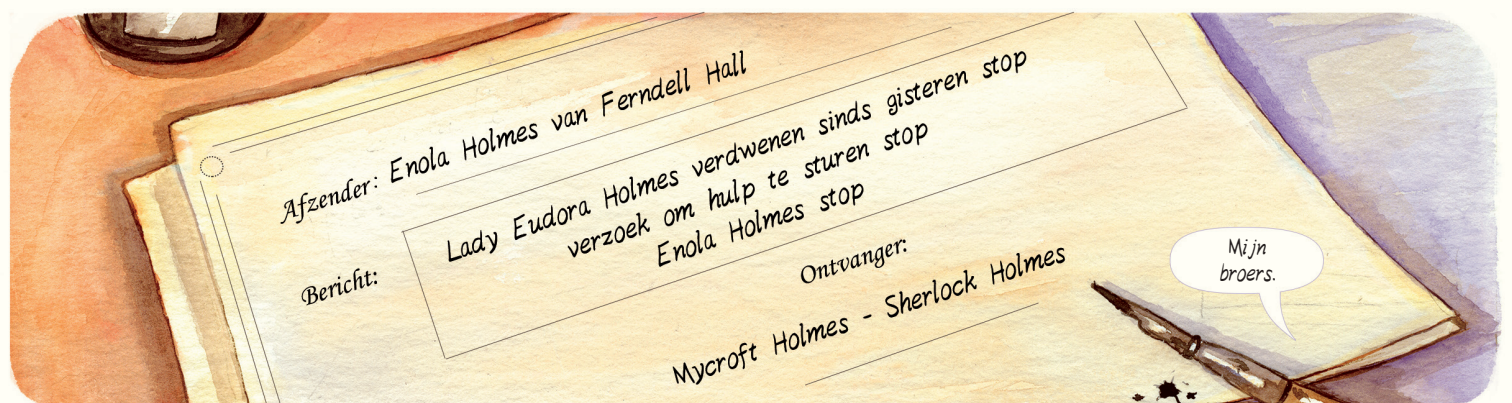 Afzender: Enola Holmes van Ferndell Hall
Bericht:
Lady Eudora Holmes verdwenen sinds gisteren stop
verzoek om hulp te sturen stop
Enola Holmes stop
Ontvanger:
Mycroft Holmes - Sherlock Holmes
Mijn
broers.